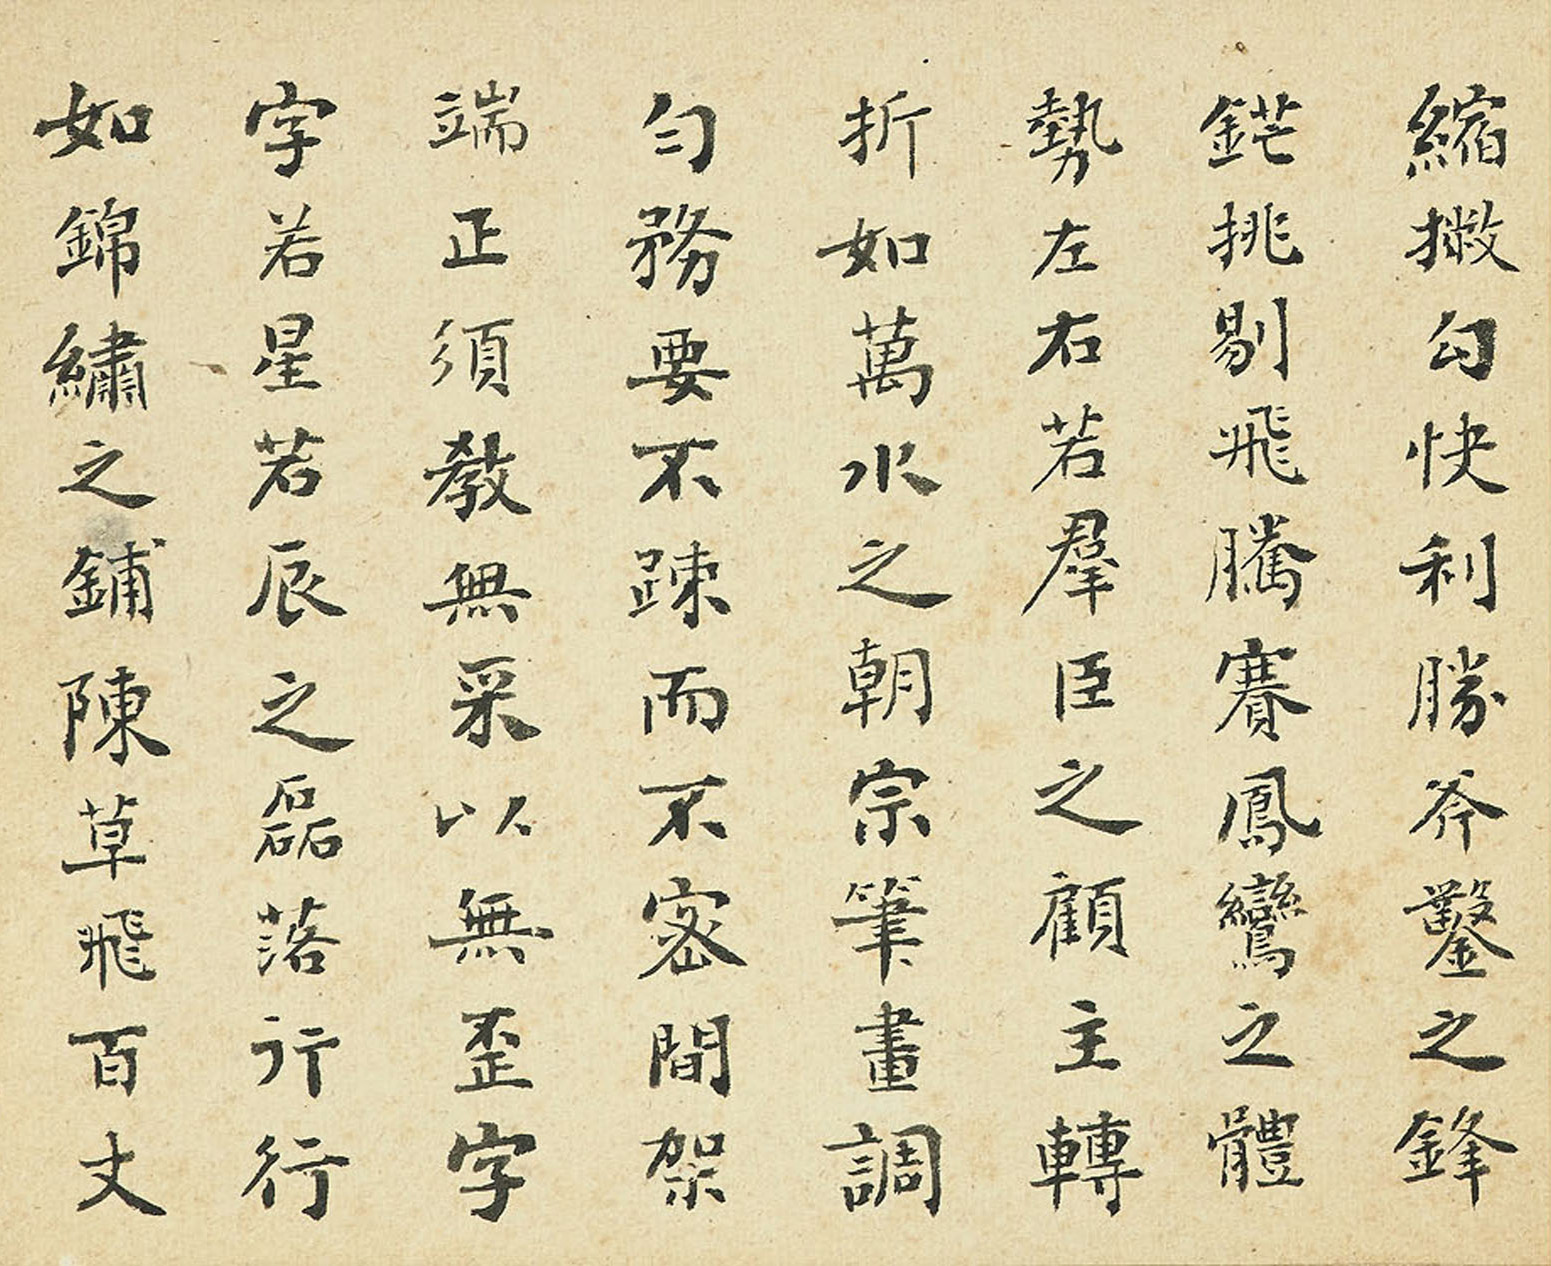 縮撇勾快利勝斧鑿之鋒
鋩挑剔飛騰賽鳳鸞之體
勢左右若羣臣之顧主轉
折如萬水之朝宗筆畫調
勻務要不踈而不密間架
端正須教無采以無歪字
字若星若辰之磊落行行
如錦繡之鋪陳草飛百丈